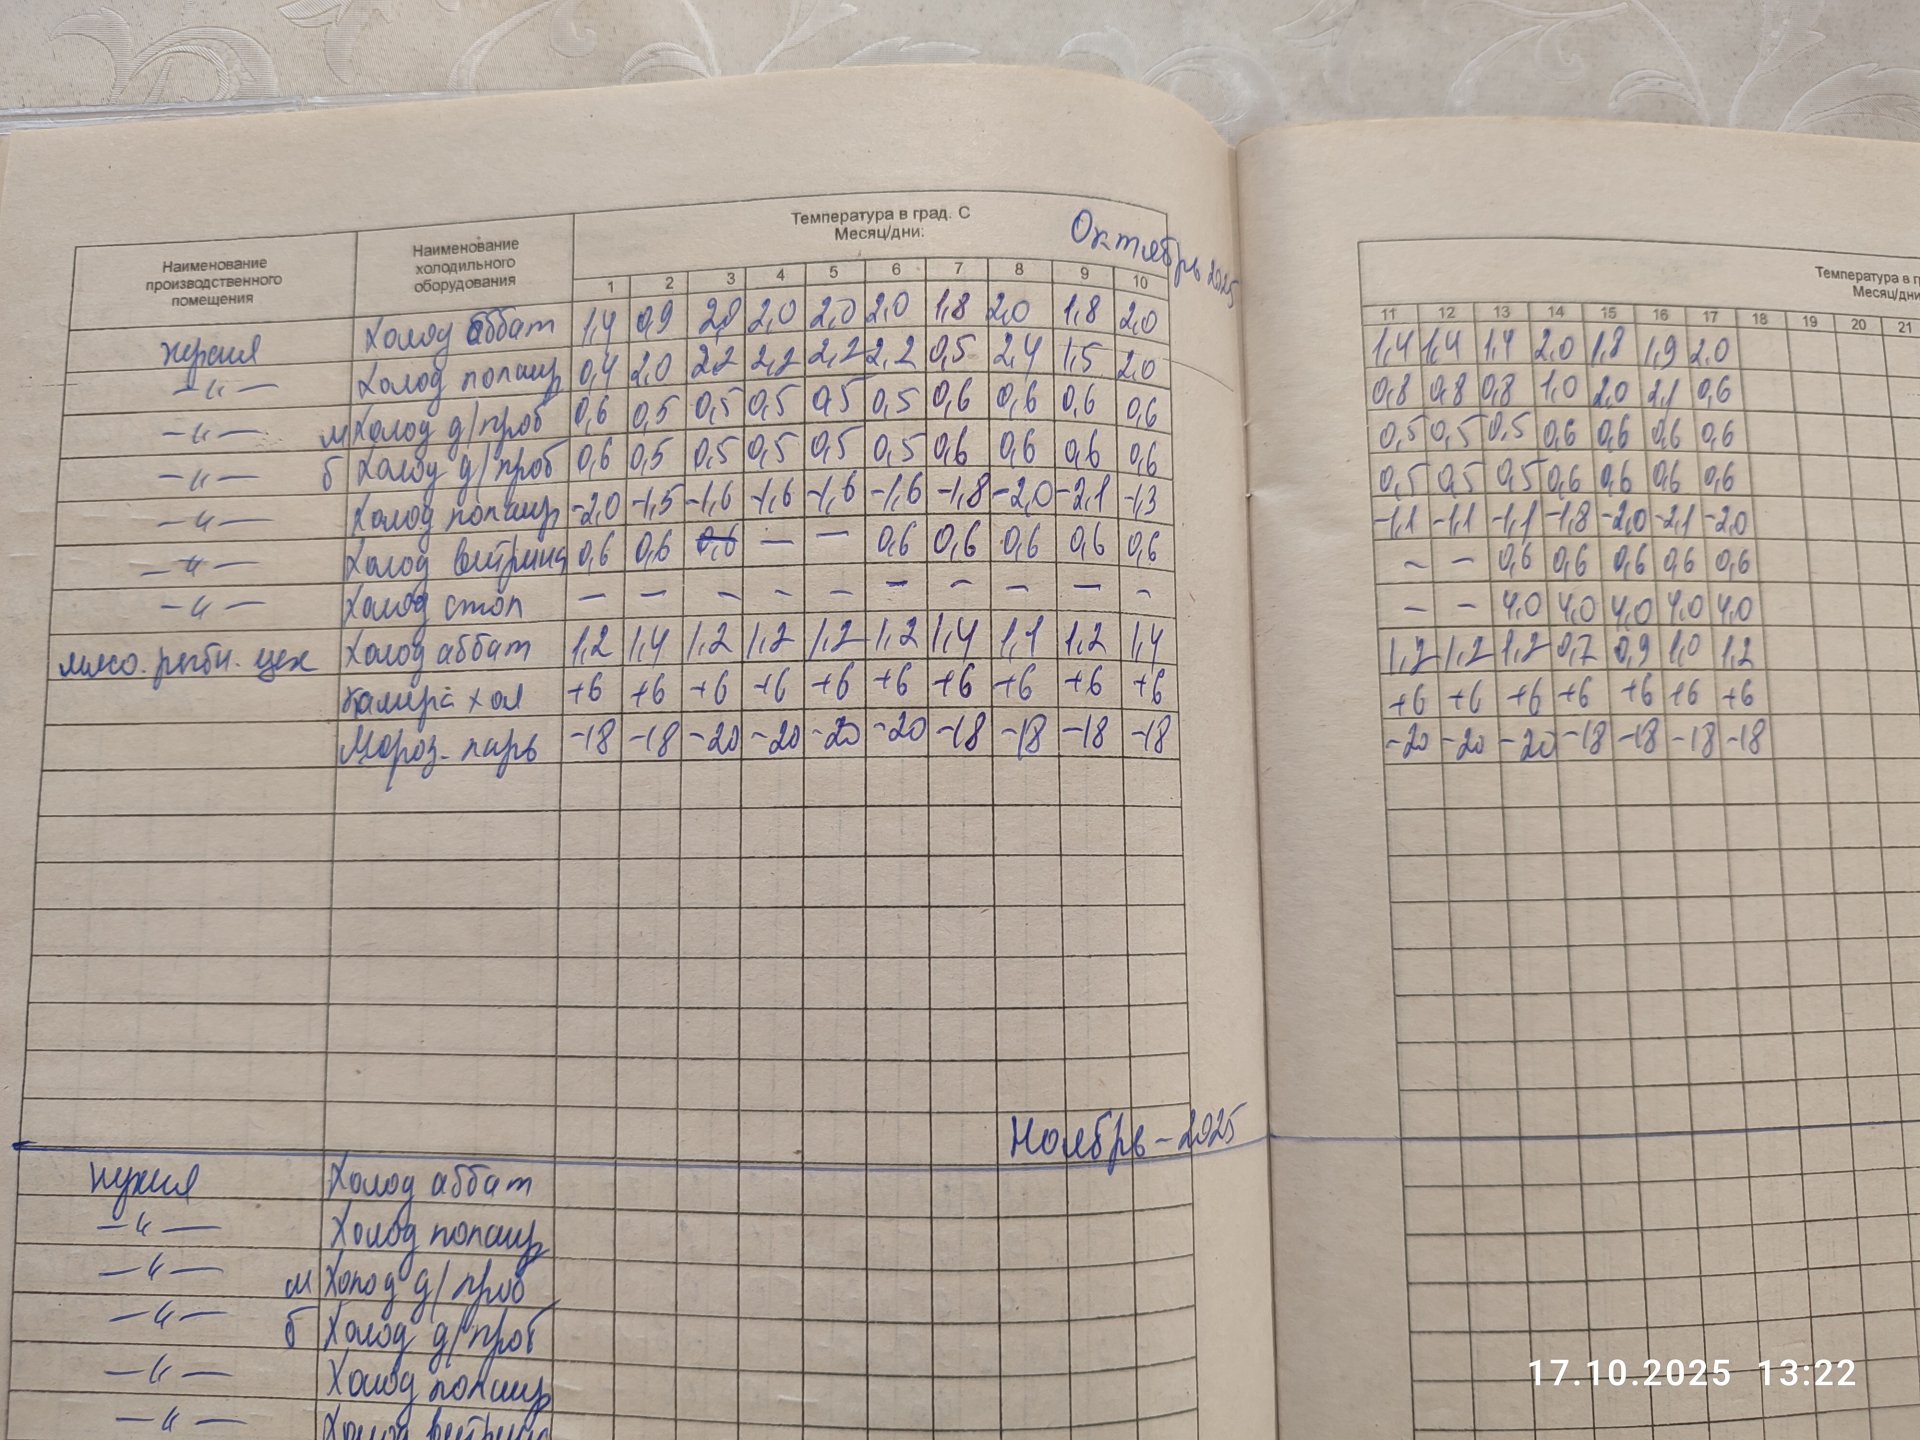 Температура в град. С
Месяц/дни:
Октябрь 2025
Наименование производственного помещения
Наименование холодильного оборудования
1 2 3 4 5 6 7 8 9 10
кухня Холод аббат 1,4 0,9 2,0 2,0 2,0 2,0 1,8 2,0 1,8 2,0
—"— Холод попаир 0,4 2,0 2,2 2,2 2,2 2,2 0,5 2,4 1,5 2,0
—"— м Холод д/проб 0,6 0,5 0,5 0,5 0,5 0,5 0,6 0,6 0,6 0,6
—"— б Холод д/проб 0,6 0,5 0,5 0,5 0,5 0,5 0,6 0,6 0,6 0,6
—"— Холод попаир -2,0 -1,5 -1,6 -1,6 -1,6 -1,6 -1,8 -2,0 -2,1 -1,3
—"— Холод витрина 0,6 0,6 0,6 — — 0,6 0,6 0,6 0,6 0,6
—"— Холод стол — — — — — — — — — —
мясо. рыбн. цех Холод аббат 1,2 1,4 1,2 1,2 1,2 1,2 1,4 1,1 1,2 1,4
Камера хол +6 +6 +6 +6 +6 +6 +6 +6 +6 +6
Мороз. ларь -18 -18 -20 -20 -20 -20 -18 -18 -18 -18
Ноябрь - 2025
кухня Холод аббат
—"— Холод попаир
—"— м Холод д/проб
—"— б Холод д/проб
—"— Холод попаир
—"— Холод витрина
Температура в г
Месяц/дни
11 12 13 14 15 16 17 18 19 20 21
1,4 1,4 1,4 2,0 1,8 1,9 2,0
0,8 0,8 0,8 1,0 2,0 2,1 0,6
0,5 0,5 0,5 0,6 0,6 0,6 0,6
0,5 0,5 0,5 0,6 0,6 0,6 0,6
-1,1 -1,1 -1,1 -1,8 -2,0 -2,1 -2,0
— — 0,6 0,6 0,6 0,6 0,6
— — 4,0 4,0 4,0 4,0 4,0
1,2 1,2 1,2 0,7 0,9 1,0 1,2
+6 +6 +6 +6 +6 +6 +6
-20 -20 -20 -18 -18 -18 -18
17.10.2025 13:22